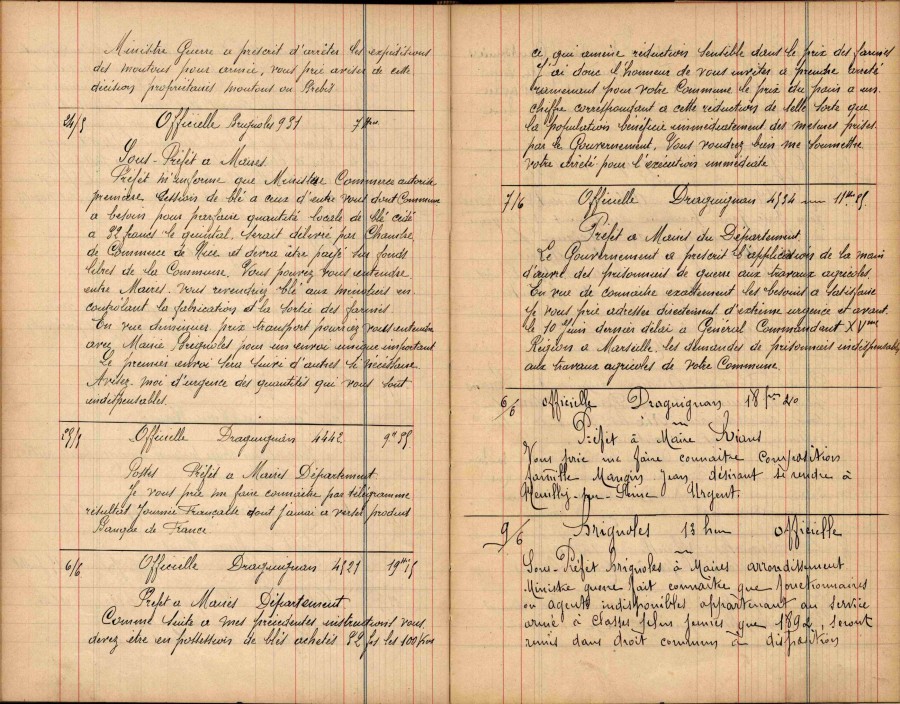 Ministre Guerre a prescrit d'arrêter les expéditions
des moutons pour armée, vous prie aviser de cette
décision propriétaires moutons ou Brebis
24/5 Officielle Brignoles 931
Sous-Préfet a Maires
Préfet m'informe que Ministre Commerce autorise
première cession de blé a ceux d'entre vous dont Commune
a besoin pour parfaire quantité locale de blé cédé
a 32 francs le quintal, serait délivré par Chambre
de Commerce de Nice et devra être payé sur fonds
libres de la Commune. Vous pouvez vous entendre
entre Maires. Vous revendrez blé aux minotiers en
contrôlant la fabrication et la sortie des farines.
En vue diminuer prix transport pourrez vous entendre
avec Mairie Brignoles pour un envoi unique important
Le premier envoi sera suivi d'autres si nécessaire.
Avisez-moi d'urgence des quantités qui vous sont
indispensables.
Officielle Draguignan 4442
Postes Préfet a Maires Département
Je vous prie me faire connaître par télégramme
résultat Journée Française dont j'aurai a verser produit
Banque de France
6/6 Officielle Draguignan 4521
Préfet a Maires Département
Comme suite a mes précédentes instructions vous
devez être en possession de blés achetés 32 frs les 100
ce qui amène réduction sensible dans le prix des farines
J'ai donc l'honneur de vous inviter a prendre arrêté
ramenant pour votre Commune le prix du pain a un
chiffre correspondant a cette réduction de telle sorte que
la population bénéficie immédiatement des mesures prises
par le Gouvernement. Vous voudrez bien me soumettre
votre arrêté pour l'exécution immédiate
7/6 Officielle Draguignan 4524
Préfet a Maires du Département.
Le Gouvernement a prescrit l'application de la main
d'œuvre des prisonniers de guerre aux travaux agricoles.
En vue de connaitre exactement les besoins a satisfaire
je vous prie adresser directement d'extrême urgence et avant
le 10 Juin dernier délai a Général Commandant XV me
Région a Marseille, les demandes de prisonniers indispensables
aux travaux agricoles de votre Commune.
6/6 Officielle Draguignan 18
Préfet à Maire Rians
Vous prie me faire connaitre Composition
famille Mangin Jean désirant se rendre à
Neuilly-sur-Seine Urgent.
9/6 Brignoles 13 h Officielle
Sous-Préfet Brignoles à Maires arrondissement
Ministre guerre fait connaître que fonctionnaires
ou agents indisponibles appartenant au service
armé à classes plus jeunes que 1892, seront
remis dans droit commun à disposition